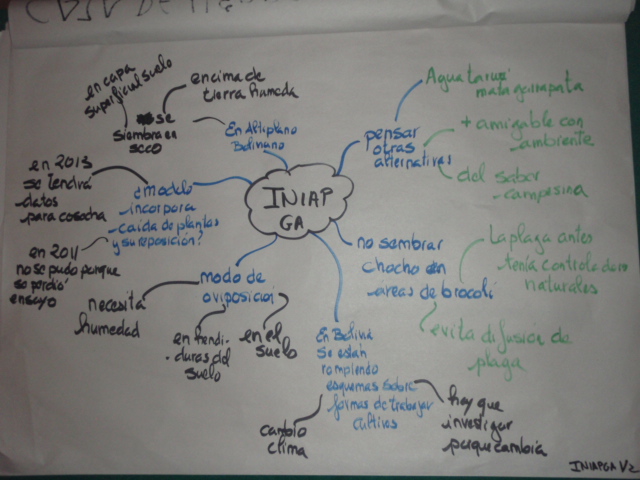 INIAP
GA
en capa
superficial suelo
encima de
tierra humeda
se
siembra en
seco
En Altiplano
Boliviano
en 2013
se tendrá
datos
para cosecha
¿modelo
incorpora
caida de plantas
y su reposición?
en 2011
no se pudo porque
se perdió
ensayo
modo de
oviposicion
necesita
humedad
en hendi-
duras del
suelo
en el
suelo
pensar
otras
alternativas
Agua tarwi
mata garrapata
+ amigable con
ambiente
del saber
campesino
no sembrar
chocho en
areas de brocoli
La plaga antes
tenía controladores
naturales
evita difusión de
plaga
En Bolivia
se están
rompiendo
esquemas sobre
formas de trabajar
cultivos
cambio
clima
hay que
investigar
porque cambia
INIAPGA V2